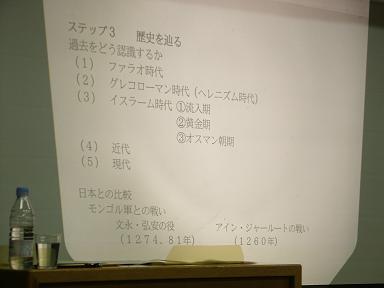 ステップ3　歴史を辿る
過去をどう認識するか
(1)　ファラオ時代
(2)　グレコローマン時代(ヘレニズム時代)
(3)　イスラーム時代 ①流入期
②黄金期
③オスマン朝期
(4)　近代
(5)　現代
日本との比較
モンゴル軍との戦い
文永・弘安の役　アイン・ジャールートの戦い
(1274、81年)　(1260年)